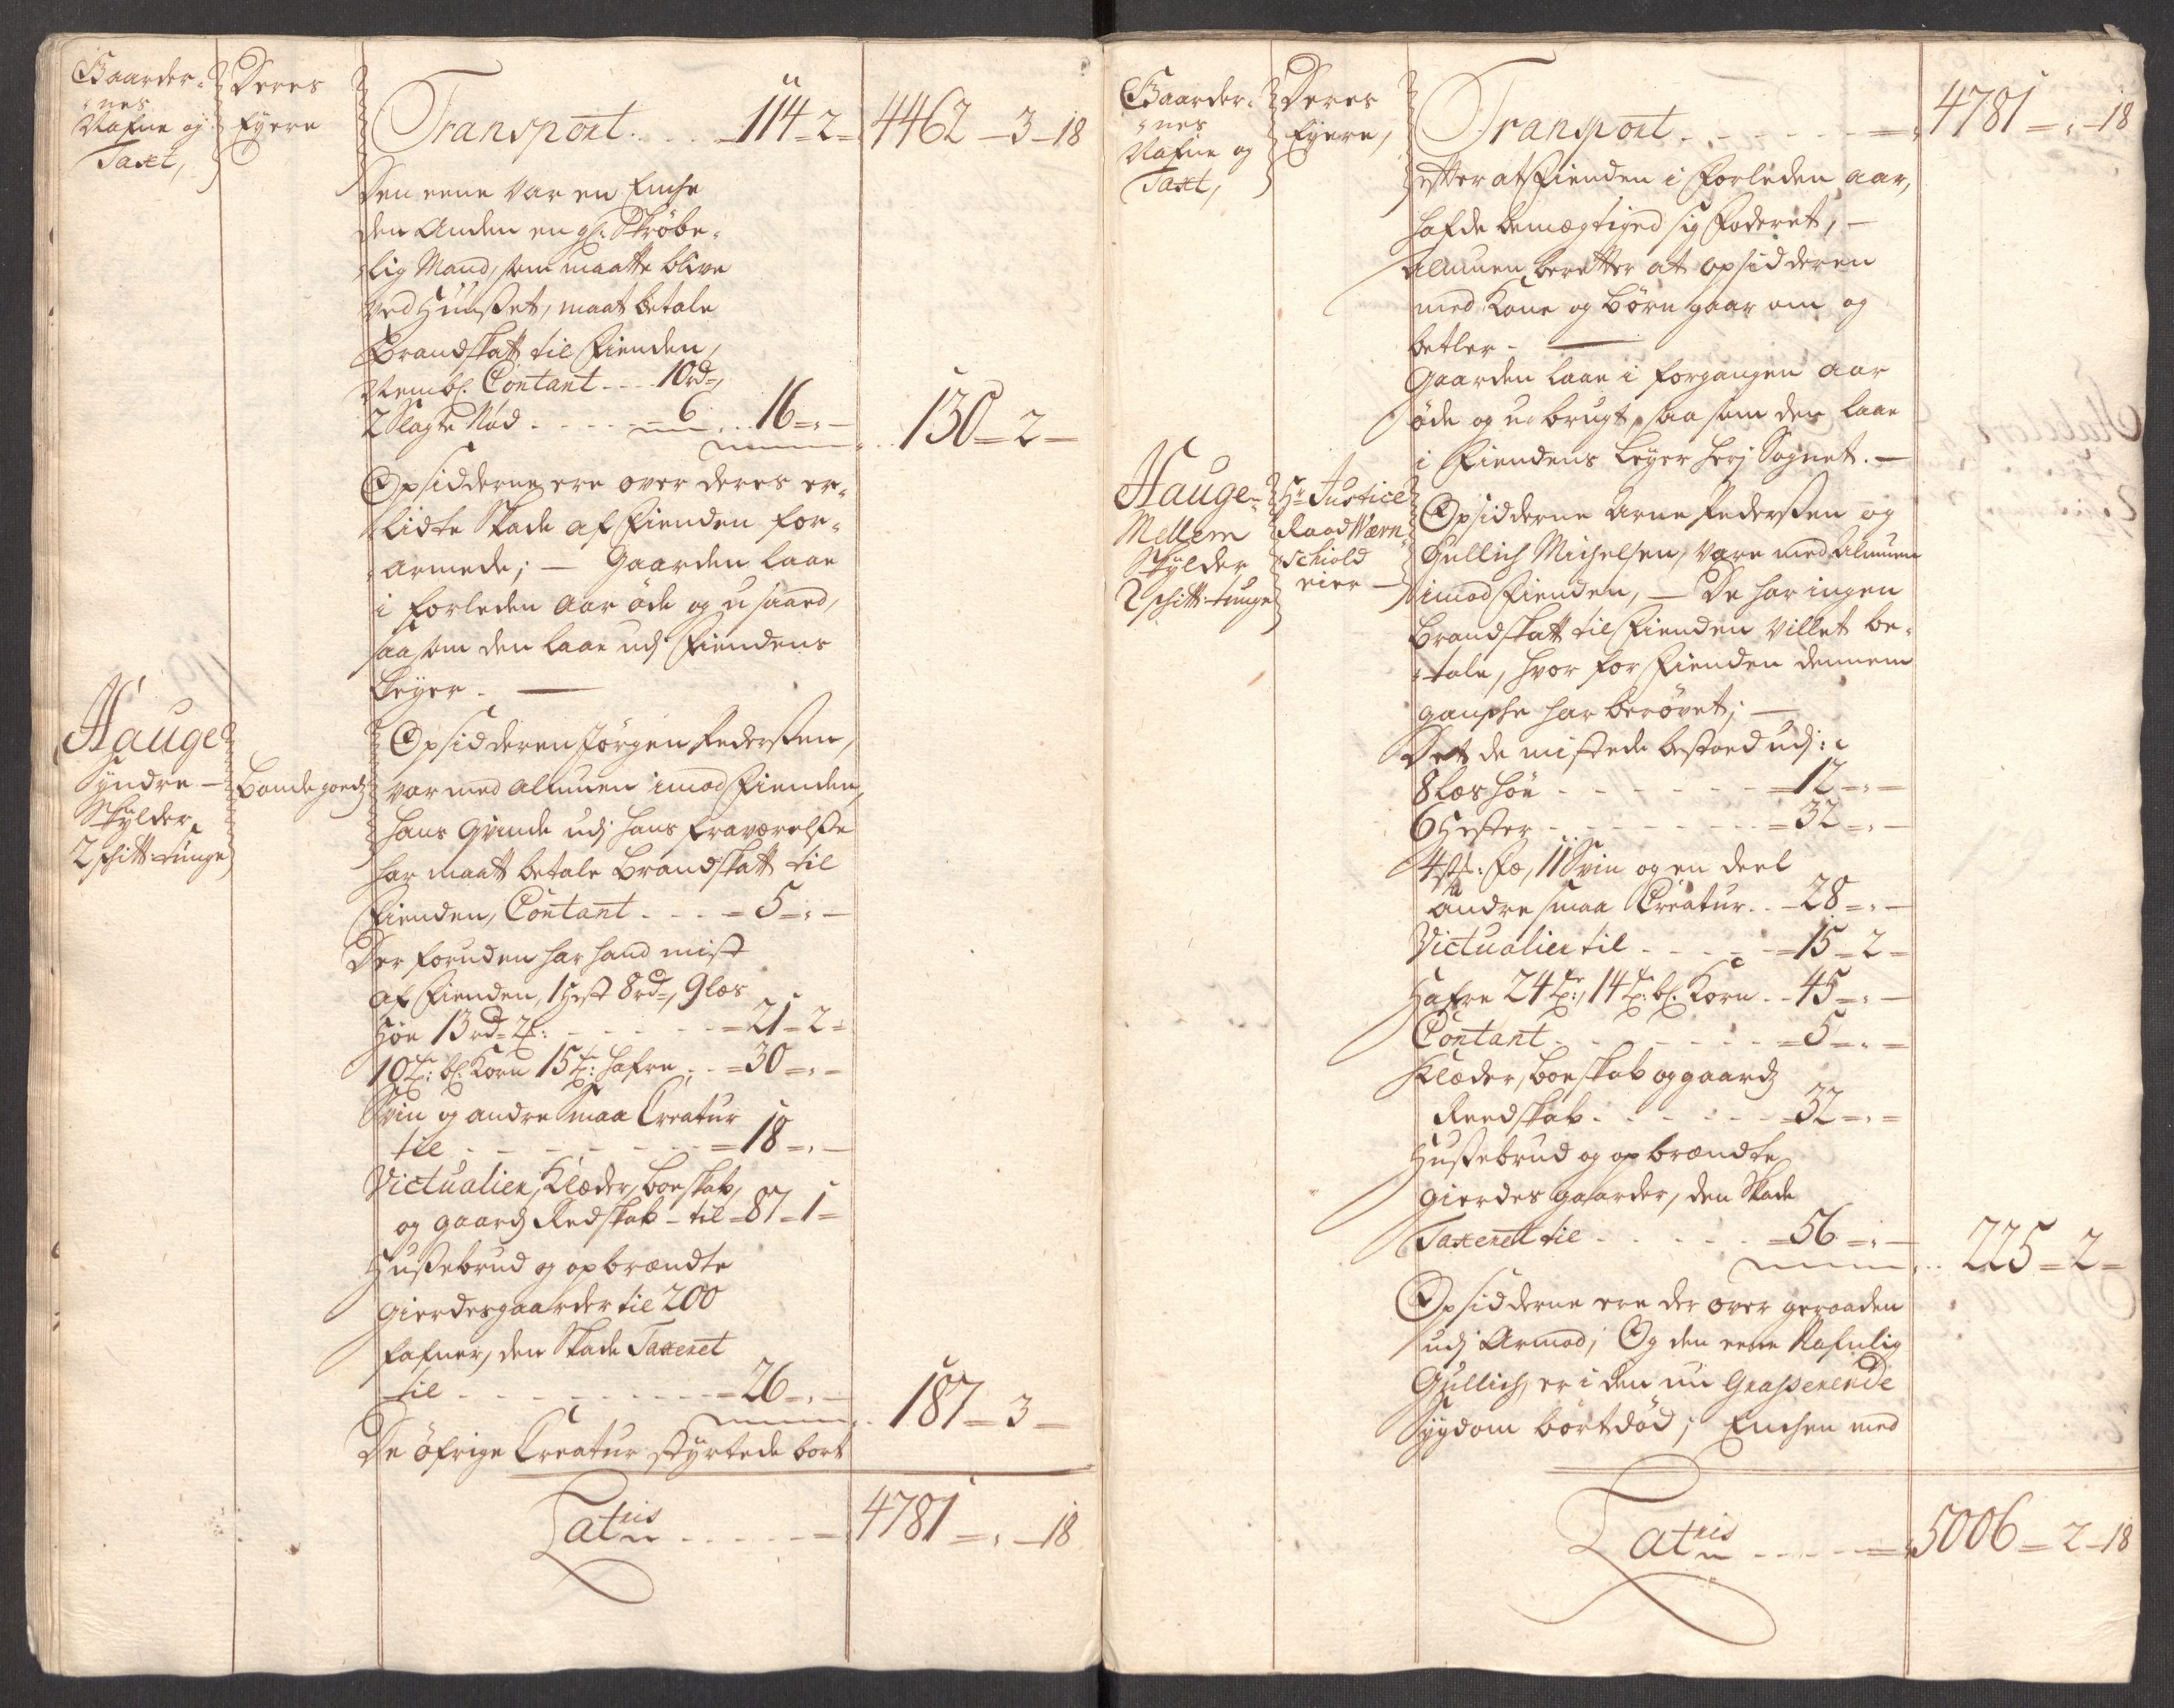 Gaarder-
nes
Nafne og
Taxt,
Deres
Eyere
Transport . . . 114 - 2 - 4462 - 3 - 18
Den eene var en Encke
den Anden en gl: Skröbe-
lig Mand, som maatte blive
ved Huusset, maat betale
Brandskatt til Fienden,
Nembl. Contant . . . 10 rd,
2 Slagte Nød . . . . 6 . . 16 - . - . . 130 - 2 -
Opsidderne ere over deres er-
lidte Skade af Fienden for-
armede; — Gaarden laae
i forleden Aar öde og usaaed,
saasom den laae udj Fiendens
Leyer. —
Hauge
Syndre —
Skylder
2 schitt: tunge
Bondegoedz
Opsidderen Jörgen Pederssen,
var med Almuen imod Fienden,
hans Qvinde udj hans fraværelsse
har maatt betale Brandskatt til
Fienden, Contant . . . - 5 - . -
Der foruden har hand mist
af Fienden, 1 Hest 8 rd, 9 læs
Höe 13 rd - 2 . . . . . - 21 - 2 -
10 t: bl. Korn 15 t: hafre . . - 30 - . -
Sviin og andre smaa Creatur
till . . . . . . . - 18 - . -
Victualier, Klæder, boeskab,
og gaardz Redskab - til - 87 - 1 -
Hussebrud og opbrændte
gierdesgaarder til 200
fafner, den Skade Taxeret
til . . . . . . . . - 26 - . - . . 187 - 3 -
De öfrige Creatur styrtede bort
Latris . . . . . - 4781 - . - 18
Gaarder-
nes
Nafne og
Taxt,
Deres
Eyere,
Transport . . . . . . 4781 - . - 18
etter at Fienden i forleden aar,
hafde bemægtiged sig foderet, —
Almuen beretter at opsidderen
med Kone og Börn gaar om og
betler. —
Gaarden laae i forgangen Aar
öde og ubrugt, saasom den laae
i Fiendens Leyer herj Sognet. —
Hauge-
Mellem
Skylder
2 schitt: tunge
Hr Justice
Raad Wærn
schiold
eier —
Opsidderne Arne Pederssen og
Gullich Michelsen, vare med Almuen
imod Fienden, — De har ingen
Brandskatt til Fienden villet be-
tale, hvor for Fienden dennem
ganske har berövet; —
Det de mistede bestoed udj:
8 læs höe . . . . . . - 12 - . -
6 Hester . . . . . . . - 32 - . -
4 st: Fæ, 11 Sviin og en deel
andre smaa Creatur . . - 28 - . -
Victualier til . . . . - 15 - 2 -
Hafre 24 t:, 14 t: bl. Korn . . 45 - . -
Contant . . . . . . - 5 - . -
Klæder, boeskab og gaardz
Reedskab . . . . . . - 32 - . -
Hussebrud og opbrændte
gierdes gaarder, den Skade
Taxeret til . . . . . - 56 - . - . . 225 - 2 -
Opsidderne ere der over geraaden
udj Armod; Og den eene Nafnlig
Gullich, er i den nu Grasserende
Sygdom bortdöd; Encken med
Latris . . . . . - 5006 - 2 - 18